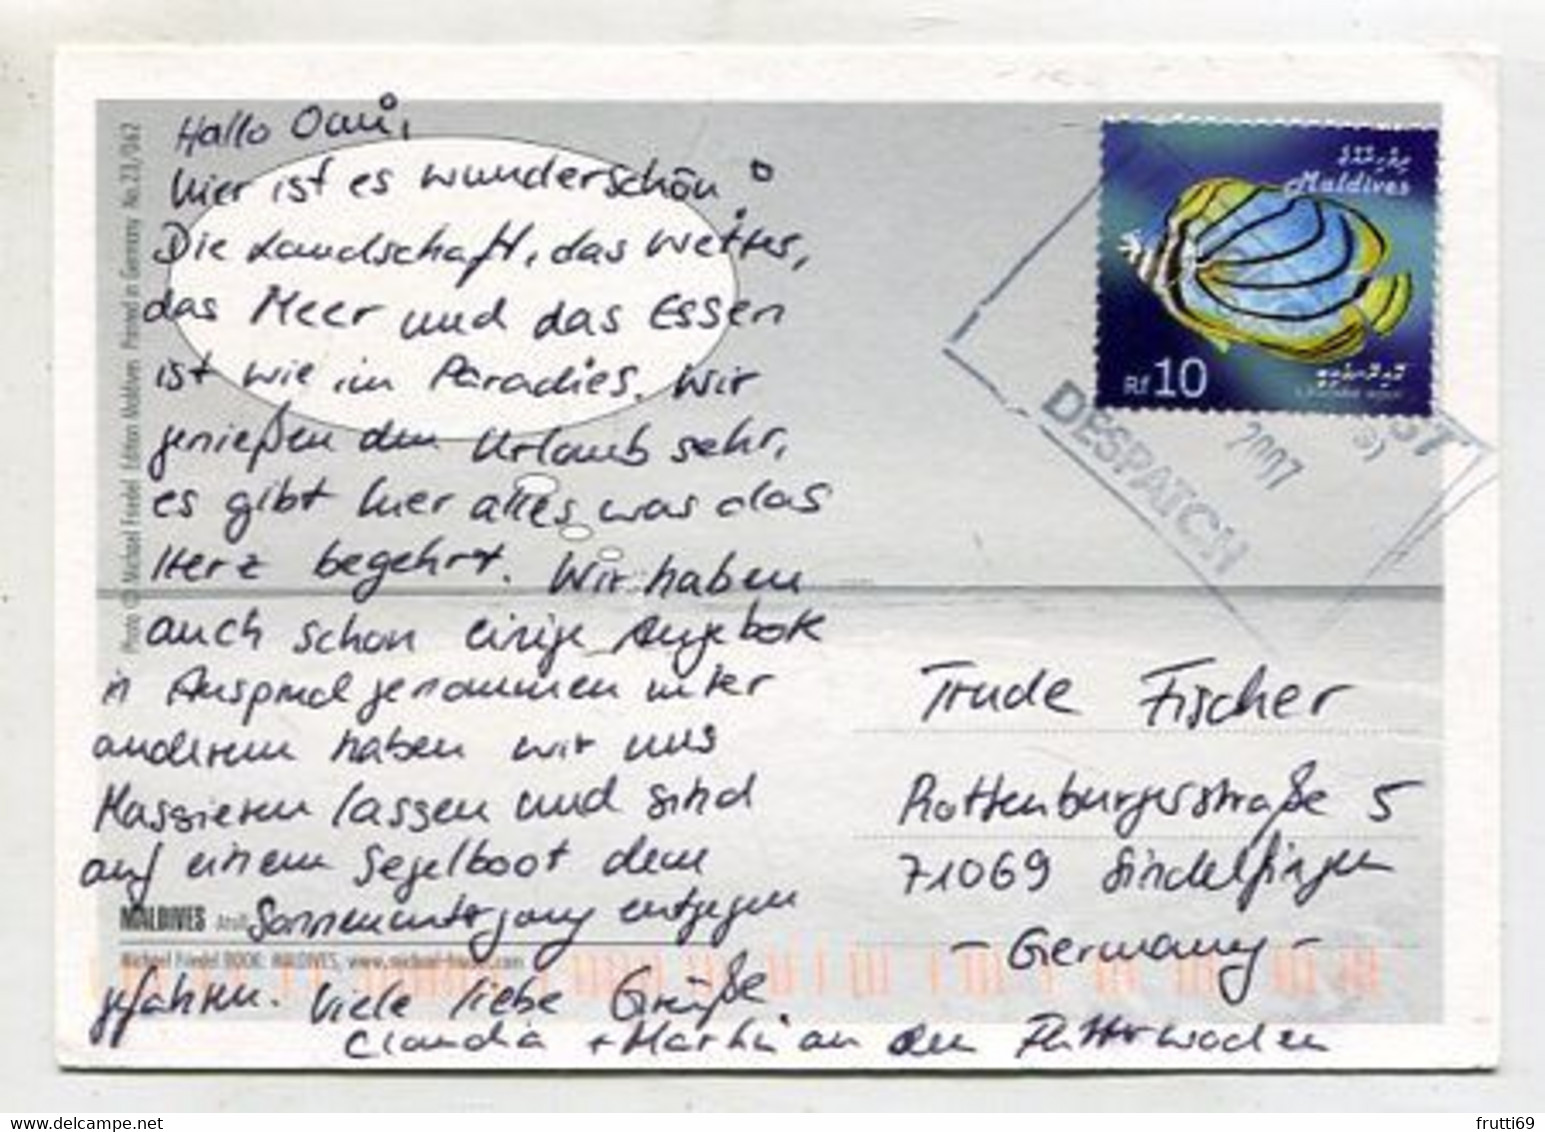 Hallo Omi,
hier ist es wunderschön!
Die Landschaft, das Wetter,
das Meer und das Essen
ist wie im Paradies. Wir
genießen den Urlaub sehr,
es gibt hier alles was das
Herz begehrt. Wir haben
auch schon einige Angebote
in Anspruch genommen unter
anderem haben wir uns
Massieren lassen und sind
auf einem Segelboot dem
Sonnenuntergang entgegen
gefahren. Viele liebe Grüße
Claudia + Martin an den
Photo © Michael Friedel Edition Maldives Printed in Germany No. 23/062
MALDIVES
Michael Friedel BOOK: MALDIVES, www.michael-friedel.com
ދިވެހިރާއްޖެ
Maldives
Rf 10
DESPATCH
2007
Trude Fischer
Rottenburgerstraße 5
71069 Sindelfingen
- Germany -
frutti69